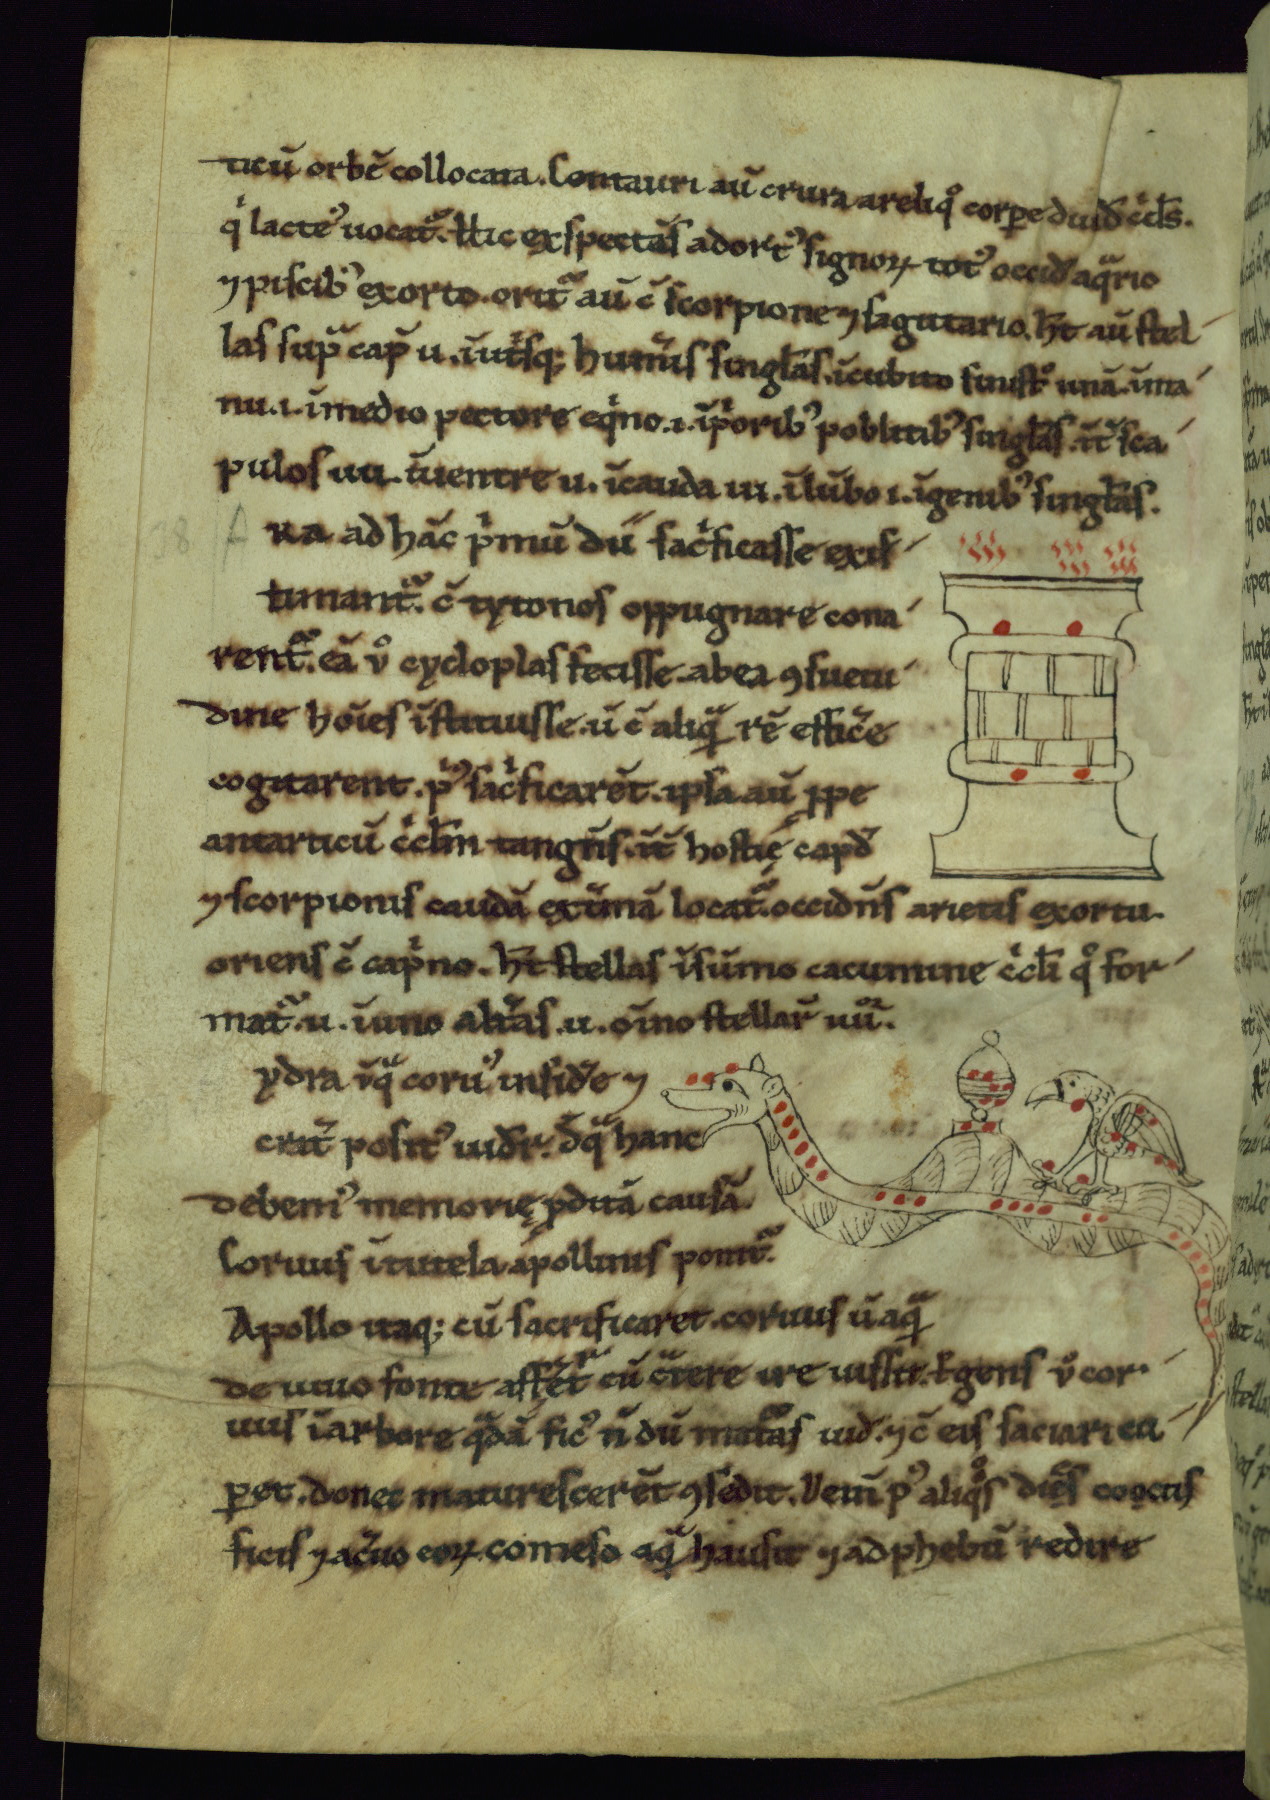 ticū orbē collocata. Centauri aū crura a reliqͦ corpe diuid̄ c̍cl̄s.
q̍ lacte᾽ uocat᷑. Hic exspectās ad ort᾽ signoꝝ tot᾽ occid̄ aq̄rio
⁊ piscib᾽ exorto. orit᷑ aū c̄ scorpione ⁊ sagittario. h̄t aū stel
las sup̄ cap̄ u. ī ut̄sq; hum̄is singl̄as. ī cubito sinistͦ unā. ī ma
nu .i. ī medio pectore eq̍no .i. ī p̍orib᾽ poblitib᾽ singl̄as. īt̄ sca
pulos iiii. ī uentre u. ī cauda iii. ī lūbo i. ī genib᾽ singl̄as.
38 A
ra ad hāc p̍mū dīi sac̍ficasse exis
timant᷑. c̄ tytonos oppugnare cona
rent᷑. eā uͦ cycloplas fecisse. ab ea ꝯsuetu
dine hoīes īstituisse. ū c̄ aliq̄ rē effic̄e
cogitarent. p̍᾽ sac̍ficarēt. ipsa aū ꝓpe
antarticū c̍cl̄m tangn̄s. īt̄ hostię capd̄
⁊ scorpionis caudā ext̄mā locat᷑. occidn̄s arietis exortu.
oriens c̄ cap̍no. h̄t stellas ī sūmo cacumine c̍cl̄i qͦ for
mat᷑. ii. ī uno alt̄as. ii. oīno stellar̄ iiii᷑.
ydra īq̄ coru᾽ insid̄e ⁊
crat̄ posit᾽ uid̄r. d̄ q̄ hanc
debem᾽ memorię ꝓditā causā.
Coruus ī tutela apollinis ponit᷑.
Apollo itaq; cū sacrificaret. coruus ū aq̄
de uiuo fonte aff̄ret cū c̄tere ire iussit. Rgens uͦ cor
uus ī arbore q̄dā fic᾽ n̄ dū mat᷑as uid̄. ⁊ c̄ eis saciari cu
ꝑet. donec maturescerēt ꝯsedit. Ueīu p᾽ aliqͦs diēs coctis
ficis ⁊ ac̄uo eoꝝ comeso aq̄ hausit ⁊ ad phebū redire